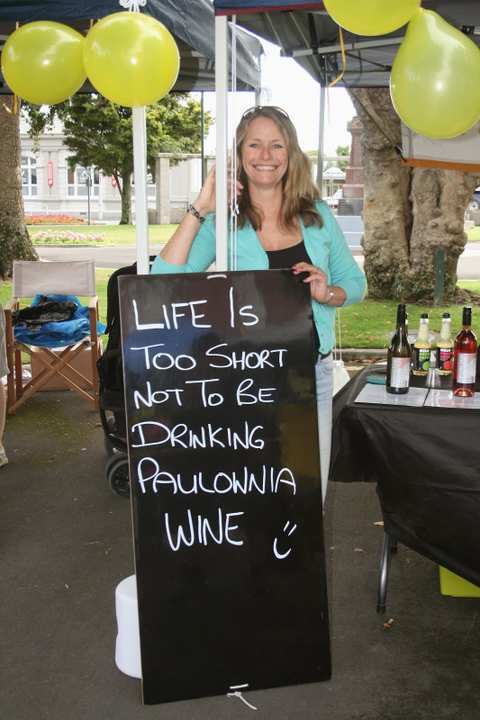 LIFE IS
TOO SHORT
NOT TO BE
DRINKING
PAULOWNIA
WINE